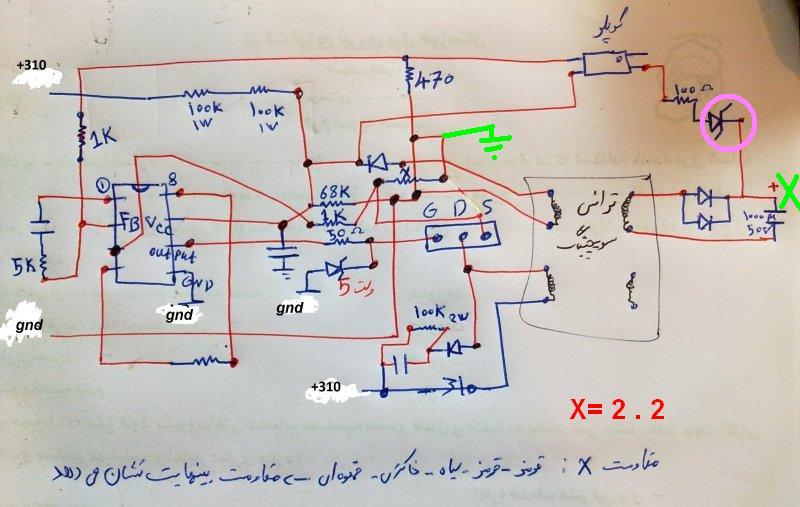 کوپلر
+310
470
100Ω
100K
1W
100K
1W
1K
X
+
① 8
68K
1K
50Ω
FB Vcc
output
GND
G D S
ترانس
سویچینگ
1000M
50V
5K
5 ولت
gnd
gnd
gnd
100K
2W
+310
X= 2 . 2
مقاومت X : قرمز - قرمز - سیاه - خاکستری - قهوه‌ای - مقاومت بینهایت نشان می دهد